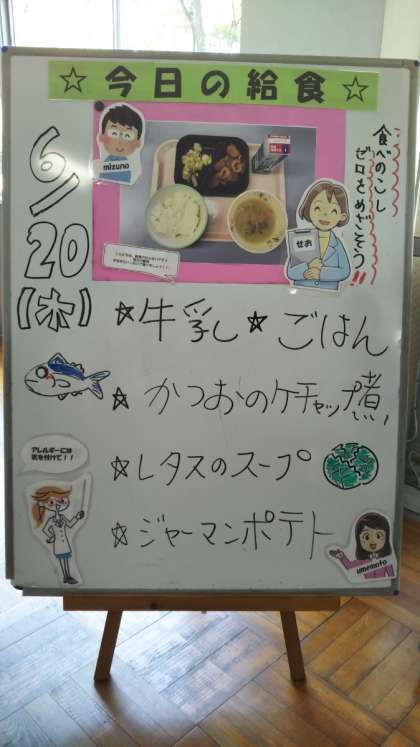 ☆今日の給食☆
6/20
【木】
mizuno
せお
食べのこし
ゼロをめざそう!!
☆牛乳☆ごはん
☆かつおのケチャップ煮
☆レタスのスープ
☆ジャーマンポテト
アレルギーには
気を付けて!!
umemoto